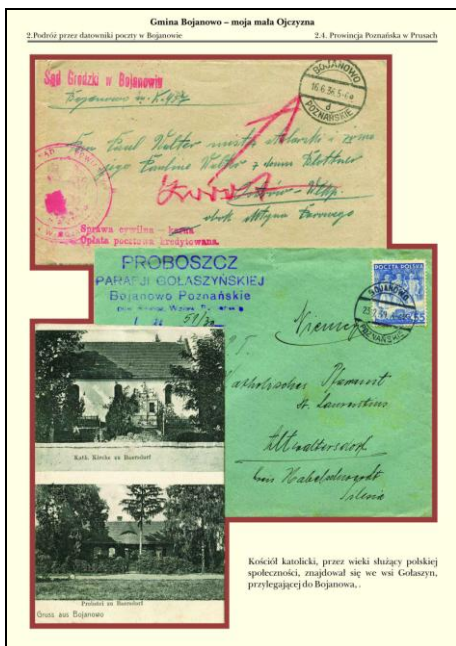 Gmina Bojanowo – moja mała Ojczyzna
2.Podróż przez datowniki poczty w Bojanowie 2.4. Prowincja Poznańska w Prusach
Sąd Grodzki w Bojanowie
BOJANOWO
16.6.34
d
POZNAŃSKIE
Pan Paul Walter mistrz stolarski i żona
jego Pauline Walter z domu
obok Młyna Parowego
Sprawa cywilna - karna
Opłata pocztowa kredytowana.
PROBOSZCZ
PARAFJI GOŁASZYŃSKIEJ
Bojanowo Poznańskie
POCZTA POLSKA
55
BOJANOWO
POZNAŃSKIE
Niemcy
Katholisches Pfarramt
St. Laurentius
Altwaltersdorf
Kreis Habelschwerdt
Silesia
Kath. Kirche zu Baersdorf
Probstei zu Baersdorf
Gruss aus Bojanowo
Kościół katolicki, przez wieki służący polskiej
społeczności, znajdował się we wsi Gołaszyn,
przylegającej do Bojanowa, .